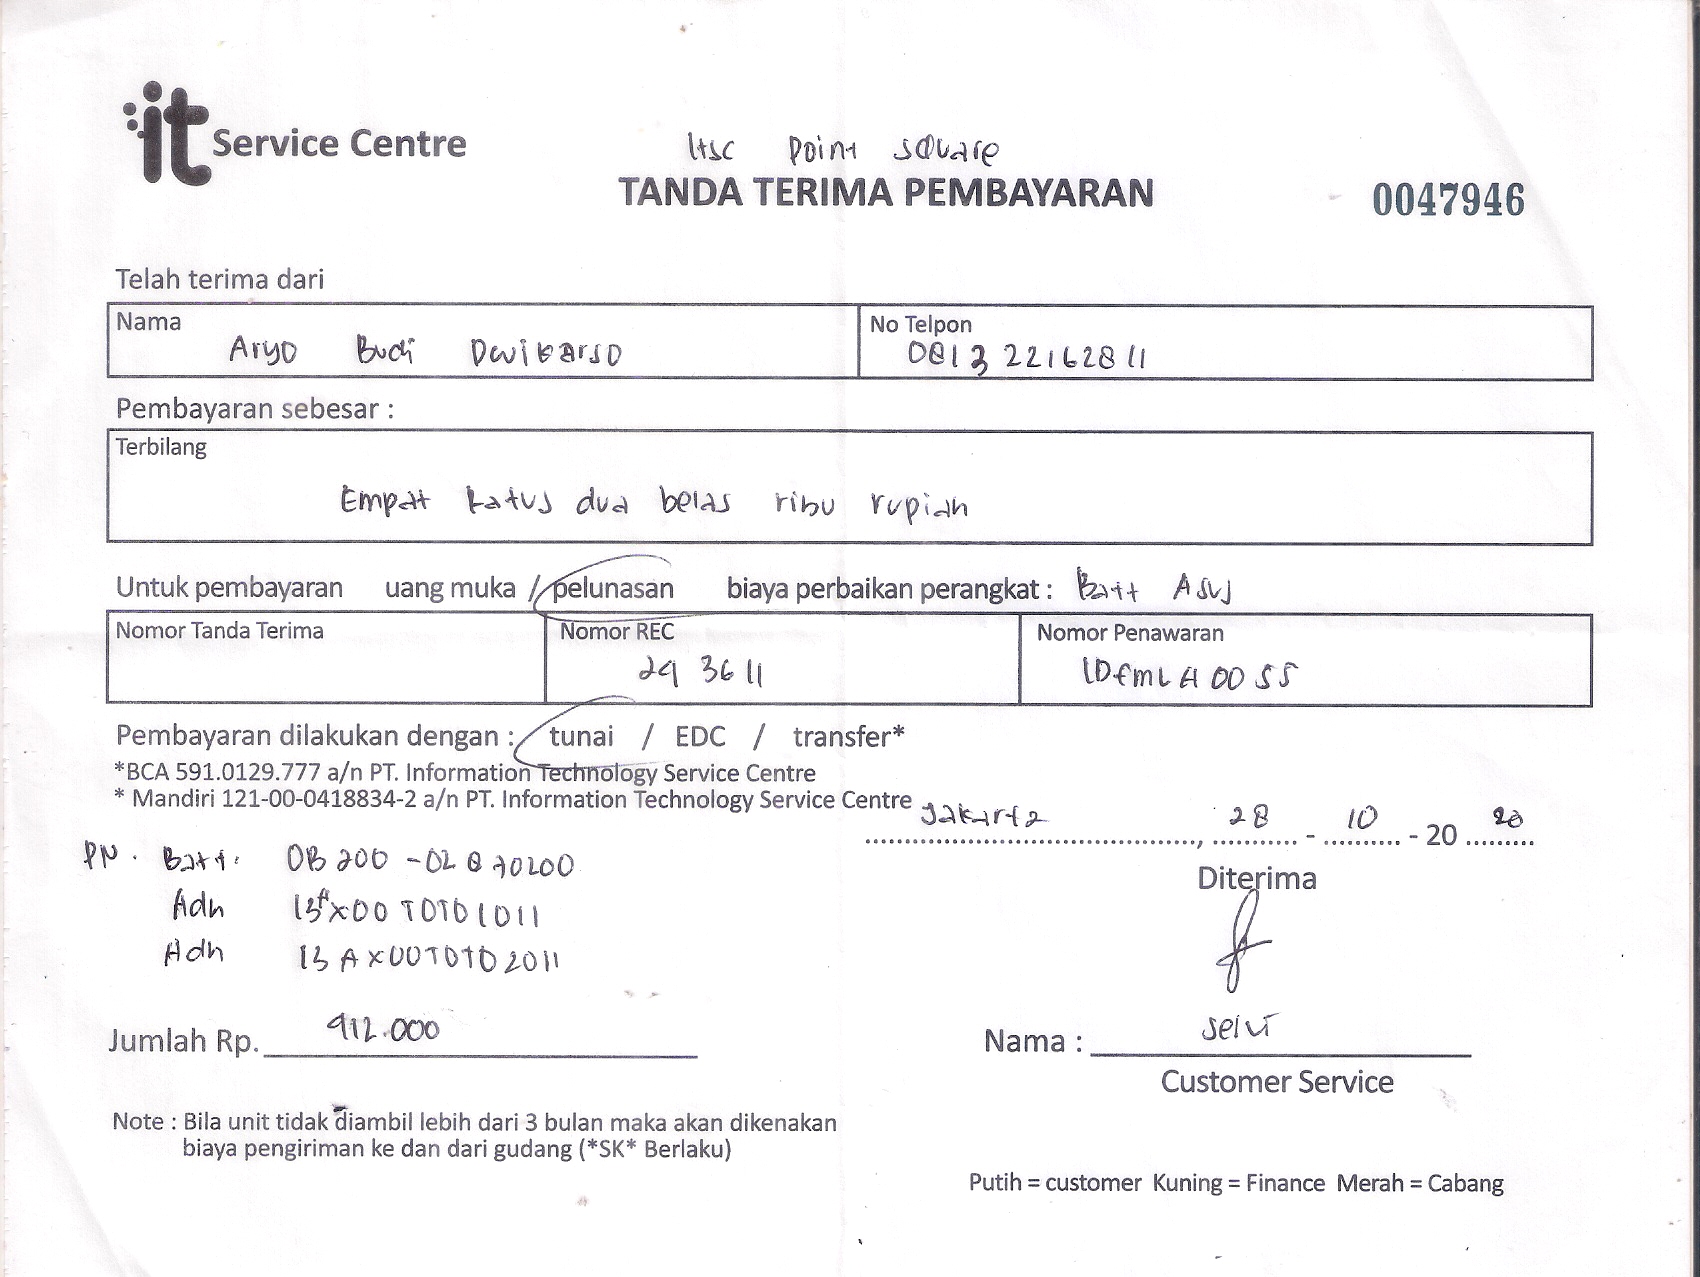 it Service Centre
Itsc Point Square
TANDA TERIMA PEMBAYARAN
0047946
Telah terima dari
Nama
Aryo Budi Dwikarso
No Telpon
0813 22162811
Pembayaran sebesar :
Terbilang
Empat ratus dua belas ribu rupiah
Untuk pembayaran uang muka / pelunasan biaya perbaikan perangkat : Batt Asus
Nomor Tanda Terima
Nomor REC
293611
Nomor Penawaran
Pembayaran dilakukan dengan : tunai / EDC / transfer*
*BCA 591.0129.777 a/n PT. Information Technology Service Centre
* Mandiri 121-00-0418834-2 a/n PT. Information Technology Service Centre
Jakarta, 28 - 10 - 20 20
Diterima
PN. Batt.
Adh 13AX00T0T01011
Adh 13AX00T0T02011
Jumlah Rp. 412.000
Nama : Selvi
Customer Service
Note : Bila unit tidak diambil lebih dari 3 bulan maka akan dikenakan
biaya pengiriman ke dan dari gudang (*SK* Berlaku)
Putih = customer Kuning = Finance Merah = Cabang